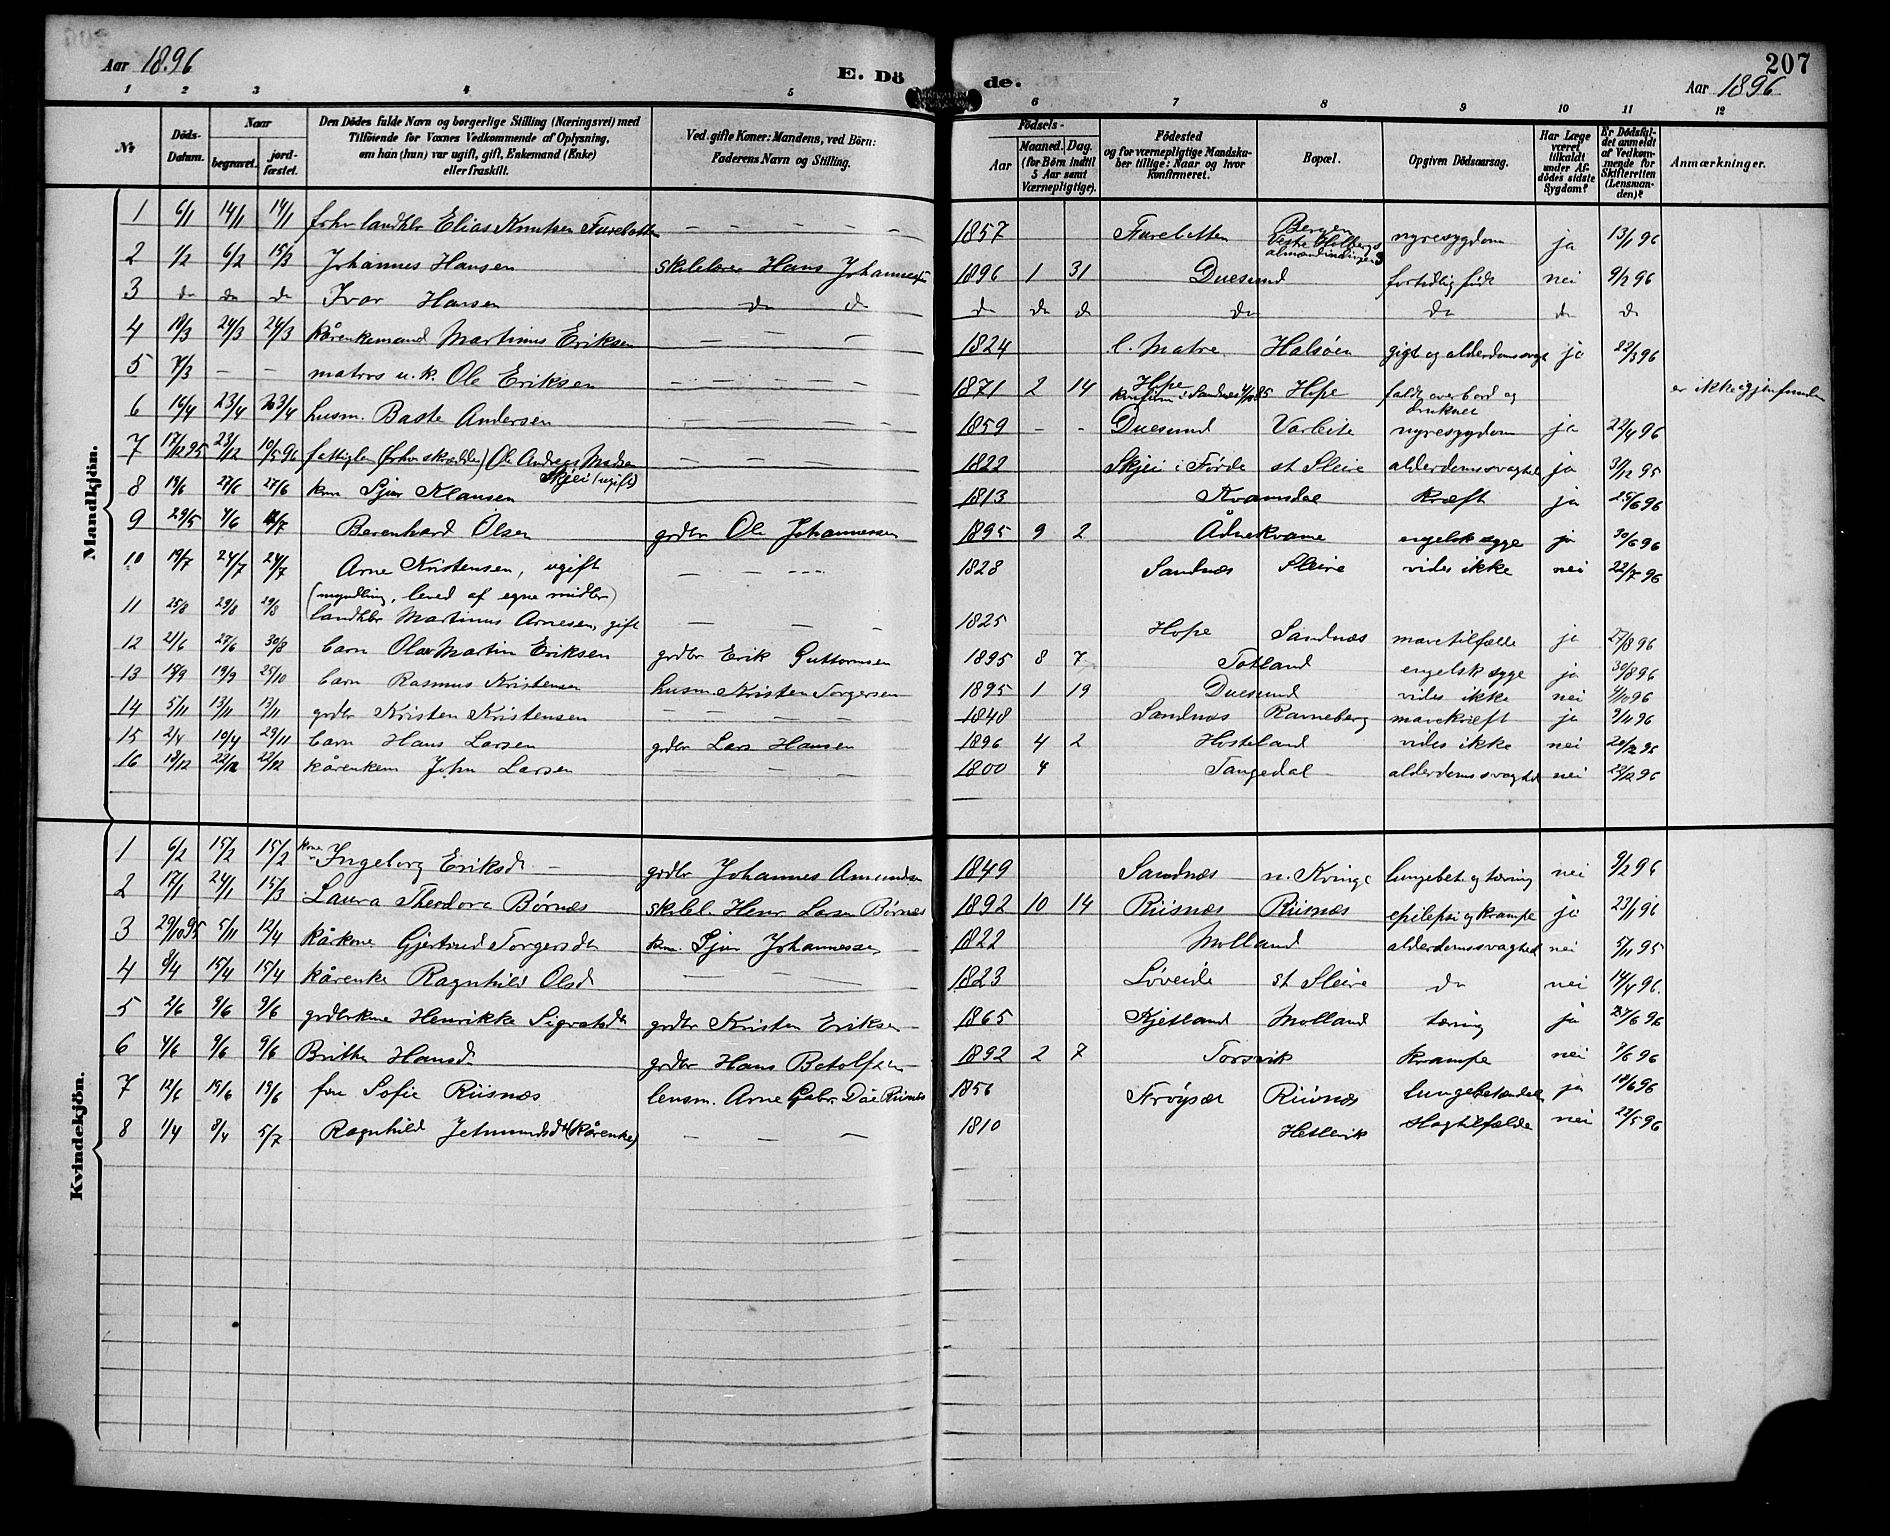 Aar 1896
E. Döde.
207
Aar 1896
1 2 3 4 5 6 7 8 9 10 11 12
№
Döds-Datum.
Naar
begravet. jordfæstet.
Den Dödes fulde Navn og borgerlige Stilling (Næringsvei) med Tilföiende for Voxnes Vedkommende af Oplysning, om han (hun) var ugift, gift, Enkemand (Enke) eller fraskilt.
Ved gifte Koner: Mandens, ved Börn: Faderens Navn og Stilling.
Födsels-
Aar Maaned. Dag. (for Börn indtil 5 Aar samt Værnepligtige).
Födested og for værnepligtige Mandskaber tillige: Naar og hvor konfirmeret.
Bopæl.
Opgiven Dödsaarsag.
Har Læge været tilkaldt under Afdödes sidste Sygdom?
Er Dödsfaldet anmeldt af Vedkommende for Skifteretten (Lensmanden)?
Anmærkninger.
Mandkjön.
1 6/1 14/1 14/1 landhbr Elias Knutsen Furebotten – – – – – 1857 Furebotten Bergen nyresygdom ja 13/1 96
2 1/2 6/2 15/3 Johannes Hansen Hans Johannes 1896 1 31 Duesund fortidlig født nei 9/2 96
3 do do do Ivar Hansen do do do do do do do do do
4 18/3 24/3 24/3 kårenkemand Martinus Eriksen – – 1824 l. Matre Halsöen gigt og alderdomssvagt ja 22/3 96
5 7/3 – – matros u.k. Ole Eriksen – – – – – 1871 2 14 Hope Hope faldt overbord og druknet er ikke igjenfunden
6 16/4 23/4 23/4 husm. Baste Andersen 1859 – – Duesund Varleite nyresygdom ja 22/4 96
7 17/12 95 23/12 10/5 96 fattiglem Ole Andreas Madsen Skjei (ugift) – – – 1822 Skjei i Førde st Sleire alderdomssvaghed ja 31/12 95
8 19/6 27/6 27/6 Sjur Klausen 1813 Kvamsdal kræft ja 25/6 96
9 29/5 4/6 Berenhard Olsen grdbr Ole Johannessen 1895 9 2 Ådnekvame engelsk syge ja 30/6 96
10 19/7 24/7 24/7 Arne Kristensen, ugift – – 1828 Sandnæs Sleire vides ikke nei 22/7 96
(myndling, leved af egne midler)
11 25/8 29/8 29/8 landhbr Martinus Arnesen, gift – – – 1825 Hope Sandnæs mavetilfælde ja 27/8 96
12 21/6 27/6 30/8 barn Olav Martin Eriksen grdbr Erik Guttormsen 1895 8 7 Totland engelsk syge ja 30/8 96
13 15/9 19/9 25/10 barn Rasmus Kristensen husm. Kristen Torgersen 1895 1 19 Duesund vides ikke nei
14 5/11 13/11 13/11 grdbr Kristen Kristensen – – – – 1848 Sandnæs Ravneberg mavekræft ja 9/11 96
15 2/4 10/4 29/11 barn Hans Larsen grdbr Lars Hansen 1896 4 2 Hosteland vides ikke nei
16 18/12 22/12 22/12 kårenkem John Larsen – – – 1800 4 Tangedal alderdomssvaghed nei 22/12 96
Kvindekjön.
1 6/2 15/2 15/2 kone Ingeborg Eriksd – grdbr Johannes Amundsen 1849 Sandnæs n. Kvinge lungebet. og tæring nei 9/2 96
2 17/1 24/1 15/3 Laura Theodora Børnes Henr Larsen Børnes 1892 10 14 Riisnæs Riisnæs epilepsi og krampe ja 23/1 96
3 29/10 95 5/11 12/4 kårkone Gjertrud Torgersdt Sjur Johannessen 1822 Molland alderdomssvaghed nei 5/11 95
4 8/4 15/4 15/4 kårenke Ragnhild Olsd – – 1823 Løveide st Sleire do nei 14/4 96.
5 2/6 9/6 9/6 grdbrkone Henrikke Sigvatsdt grdbr Kristen Eriksen 1865 Kjetland Molland tæring ja
6 4/6 9/6 9/6 Brithe Hansd grdbr Hans Botolfsen 1892 2 7 Torsvik krampe nei 9/6 96
7 12/6 19/6 19/6 fru Sofie Riisnæs lensm. Arne Gabr. Dae Riisnæs 1856 Frøyset Riisnæs lungebetændelse ja 18/6 96
8 1/4 8/4 5/7 Ragnhild Jetmundsdt (kårenke) – – – 1810 Hetlevik slagtilfælde nei 22/5 96